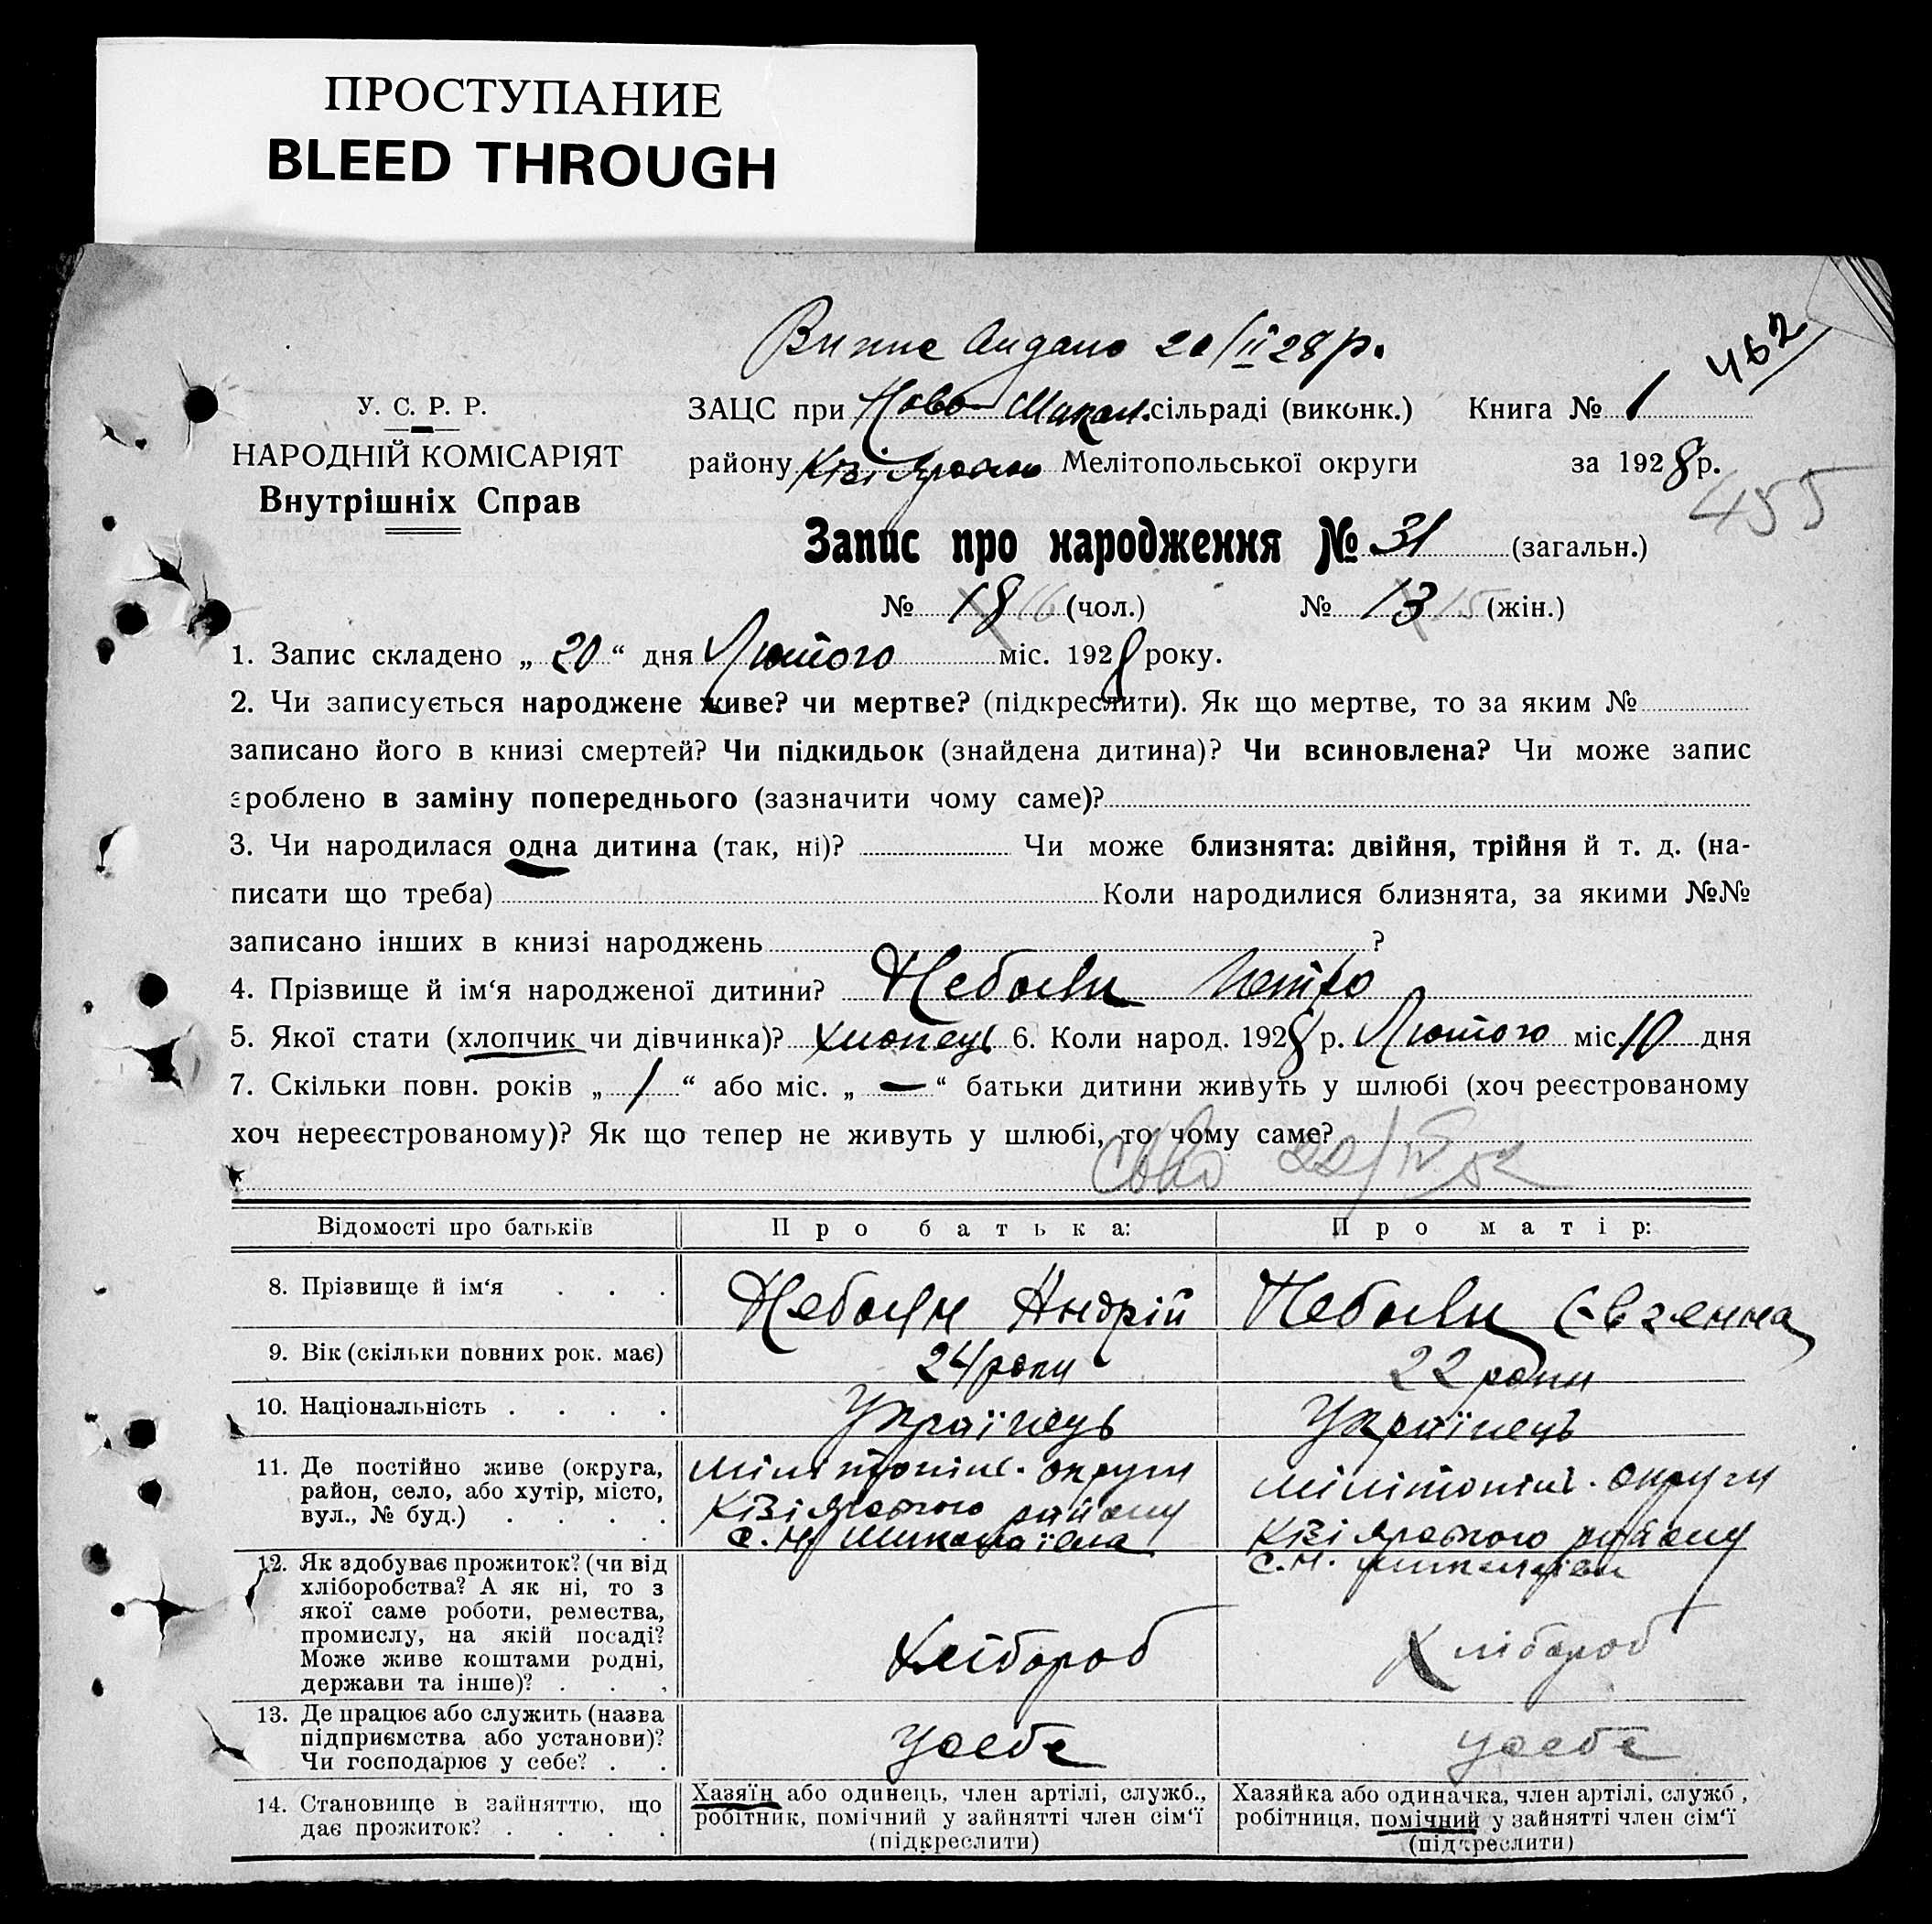 ПРОСТУПАНИЕ
BLEED THROUGH
20/II 28 р.
462
У. С. Р. Р.
НАРОДНІЙ КОМІСАРІЯТ
Внутрішніх Справ
ЗАЦС при Ново сільраді (виконк.) Книга № 1
району Мелітопольської округи за 1928 р.
455
Запис про народження № 31 (загальн.)
№ 18 16 (чол.) № 13 15 (жін.)
1. Запис складено „ 20 “ дня Лютого міс. 1928 року.
2. Чи записується народжене живе? чи мертве? (підкреслити). Як що мертве, то за яким №
записано його в книзі смертей? Чи підкидьок (знайдена дитина)? Чи всиновлена? Чи може запис
зроблено в заміну попереднього (зазначити чому саме)?
3. Чи народилася одна дитина (так, ні)? Чи може близнята: двійня, трійня й т. д. (на-
писати що треба) Коли народилися близнята, за якими №№
записано інших в книзі народжень ?
4. Прізвище й ім‘я народженої дитини? Петро
5. Якої стати (хлопчик чи дівчинка)? хлопець 6. Коли народ. 1928 р. Лютого міс. 10 дня
7. Скільки повн. років „ 1 “ або міс. „ — “ батьки дитини живуть у шлюбі (хоч реєстрованому
хоч нереєстрованому)? Як що тепер не живуть у шлюбі, то чому саме?
22/IV 52
Відомості про батьків Про батька: Про матір:
8. Прізвище й ім‘я . . . Андрій
9. Вік (скільки повних рок. має) 24 роки 22 роки
10. Національність . . . . Українець Українець
11. Де постійно живе (округа,
район, село, або хутір, місто,
вул., № буд.) . . . .
округи
району
округи
району
12. Як здобуває прожиток? (чи від
хліборобства? А як ні, то з
якої саме роботи, ремества,
промислу, на якій посаді?
Може живе коштами родні,
держави та інше)? . . .
Хлібороб Хлібороб
13. Де працює або служить (назва
підприємства або установи)?
Чи господарює у себе? . .
У себе У себе
14. Становище в зайняттю, що
дає прожиток? . . . .
Хазяїн або одинець, член артілі, служб.,
робітник, помічний у зайнятті член сім‘ї
(підкреслити)
Хазяйка або одиначка, член артілі, служб,
робітниця, помічний у зайнятті член сім‘ї
(підкреслити)